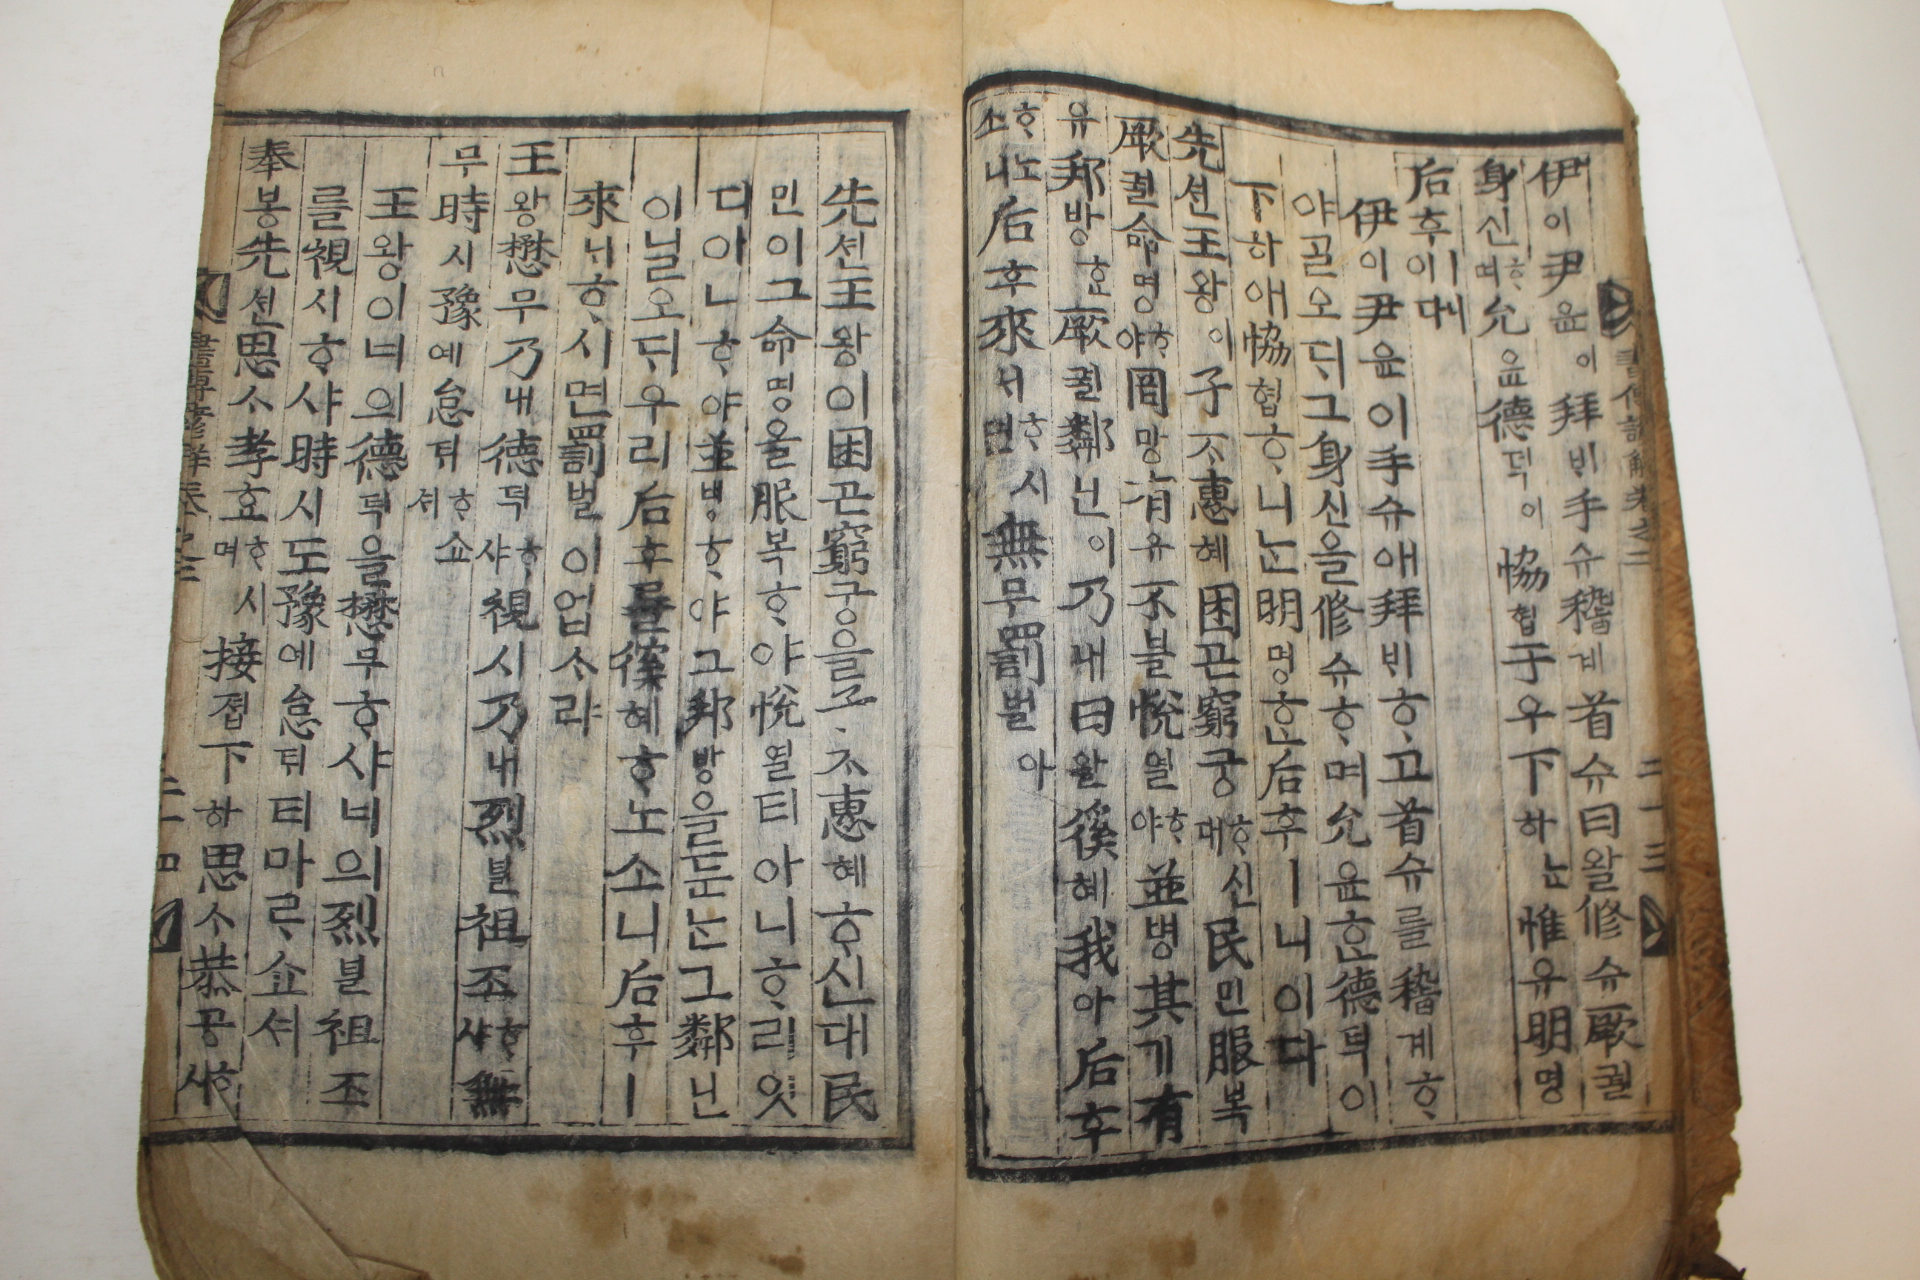 伊이尹윤이拜ᄇᆡ手슈稽계首슈曰왈修슈厥궐
身신ᄒᆞ며允윤德덕이協협于우下하ᄂᆞᆫ惟유明명
后후ㅣ니이다
伊이尹윤이手슈애拜ᄇᆡᄒᆞ고首슈를稽계ᄒᆞ
야ᄀᆞᆯ오ᄃᆡ그身신을修슈ᄒᆞ며允윤ᄒᆞᆫ德덕이
下하애協협ᄒᆞ니ᄂᆞᆫ明명ᄒᆞᆫ后후ㅣ니이다
先션王왕이子ᄌᆞ惠혜困곤窮궁ᄒᆞ신대民민服복
厥궐命명ᄒᆞ야罔망有유不블悅열ᄒᆞ야並병其기有
유邦방ᄒᆞᆫ厥궐鄰린이乃내曰왈徯혜我아后후
ᄒᆞ노소니后후來ᄅᆡᄒᆞ시면無무罰벌아
先션王왕이困곤窮궁을ᄌᆞ子惠혜ᄒᆞ신대民
민이그命명을服복ᄒᆞ야悅열티아니ᄒᆞ리잇
디아니ᄒᆞ야並병ᄒᆞ야그邦방을둔ᄂᆞᆫ그鄰린
이닐오ᄃᆡ우리后후를徯혜ᄒᆞ노소니后후ㅣ
來ᄅᆡᄒᆞ시면罰벌이업ᄉᆞ랴
王왕懋무乃내德덕ᄒᆞ샤視시乃내烈렬祖조ᄒᆞ샤無
무時시豫예怠ᄐᆡᄒᆞ쇼셔
王왕이네의德덕을懋무ᄒᆞ샤네의烈렬祖조
를視시ᄒᆞ샤時시도豫예怠ᄐᆡ티마ᄅᆞ쇼셔
奉봉先션思ᄉᆞ孝효ᄒᆞ시며接졉下하思ᄉᆞ恭공ᄒᆞ샤